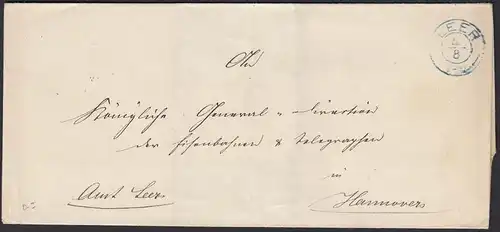 LEER
4
8
An
Königliche General-Direction
der Eisenbahnen & Telegraphen
in
Amt Leer.
Hannover.